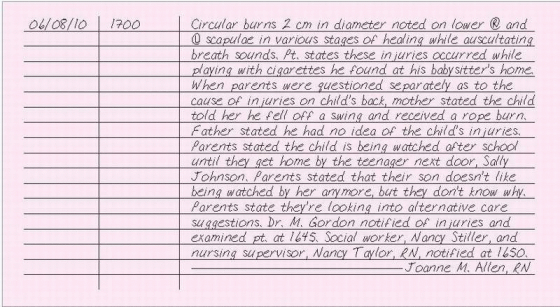 06/08/10 1700 Circular burns 2 cm in diameter noted on lower Ⓡ and
Ⓛ scapulae in various stages of healing while auscultating
breath sounds. Pt. states these injuries occurred while
playing with cigarettes he found at his babysitter's home.
When parents were questioned separately as to the
cause of injuries on child's back, mother stated the child
told her he fell off a swing and received a rope burn.
Father stated he had no idea of the child's injuries.
Parents stated the child is being watched after school
until they get home by the teenager next door, Sally
Johnson. Parents stated that their son doesn't like
being watched by her anymore, but they don't know why.
Parents state they're looking into alternative care
suggestions. Dr. M. Gordon notified of injuries and
examined pt. at 1645. Social worker, Nancy Stiller, and
nursing supervisor, Nancy Taylor, RN, notified at 1650.
Joanne M. Allen, RN